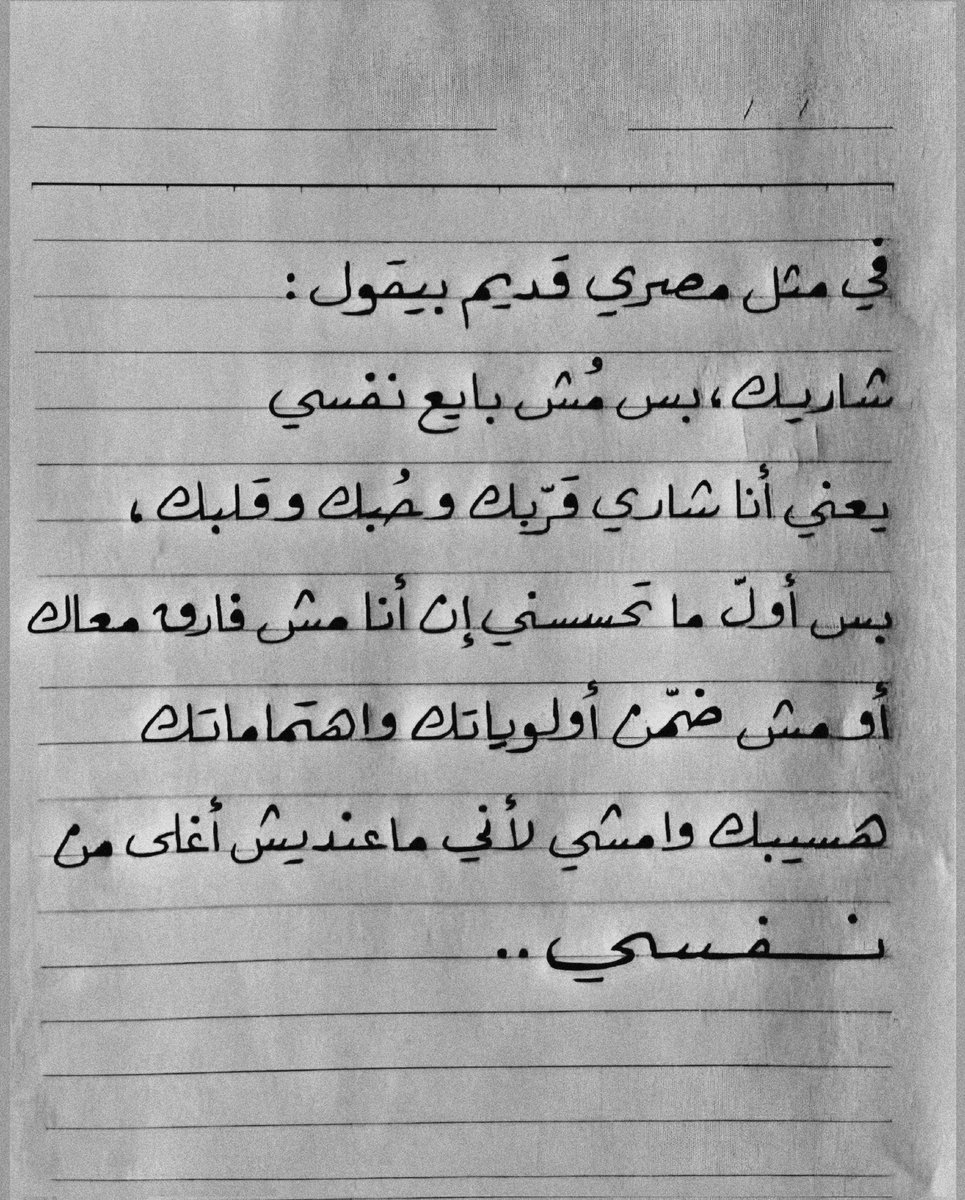 في مثل مصري قديم بيقول :
شاريك ، بس مُش بايع نفسي
يعني أنا شاري قَرّبك وحُبك وقلبك ،
بس أولّ ما تَحسسني إن أنا مش فارق معاك
أو مش ضمّن أولوياتك واهتَماماتك
هسيبك وامشي لأني ماعنديش أغلى من
نـــفـــسي ..